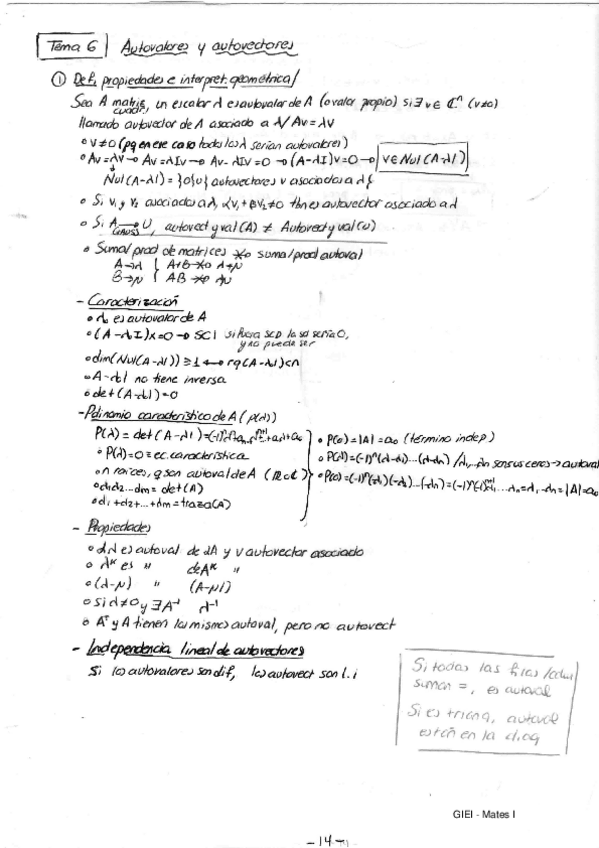 Tema 6 Autovalores y autovectores
① Def, propiedades e interpret. geométrica/
Sea A matriz cuadr, un escalar λ es autovalor de A (o valor propio) si ∃ v ∈ ℂⁿ (v≠0)
llamado autovector de A asociado a λ/ Av=λv
• v≠0 (pq en ese caso todos los λ serían autovalores)
• Av=λv → Av=λIv → Av-λIv=0 → (A-λI)v=0 → v∈Nul(A-λI)
Nul(A-λI)={0}∪{autovectores v asociados a λ}
• Si v₁ y v₂ asociados a λ, αv₁+βv₂≠0 tbn es autovector asociado a λ
• Si A → U, autovect y val(A) ≠ Autovect y val(U)
GAUSS
• Suma/prod de matrices suma/prod autoval
A→λ } A+B λ+μ
B→μ } AB λμ
- Caracterización
• λ₀ es autovalor de A
• (A-λI)x=0 → SCI si fuera SCD la sol sería 0, y no puede ser
• dim(Nul(A-λI))≥1 ↔ rg(A-λI)<n
• A-λI no tiene inversa
• det(A-λI)=0
- Polinomio característico de A (p(λ))
P(λ)=det(A-λI)=
• P(λ)=0 ≡ ec. característica
• n raíces, q son autoval de A
• λ₁λ₂...λm=det(A)
• λ₁+λ₂+...+λm=traza(A)
• P(0)=|A|=a₀ (término indep)
• P(λ)=(-1)ⁿ(λ-λ₁)...(λ-λn) / λ₁...λn son sus ceros → autoval
• P(0)=(-1)ⁿ(-λ₁)(-λ₂)...(-λn)= =λ₁...λn=|A|=a₀
- Propiedades
• αλ es autoval de αA y v autovector asociado
• λᴷ es " de Aᴷ "
• (λ-μ) " (A-μI)
• Si λ≠0 y ∃A⁻¹ λ⁻¹
• Aᵀ y A tienen los mismos autoval, pero no autovect
- Independencia lineal de autovectores
Si los autovalores son dif, los autovect son l.i
Si todas las filas/colum
suman =, es autoval
Si es triang, autoval
están en la diag
GIEI - Mates I
-14-